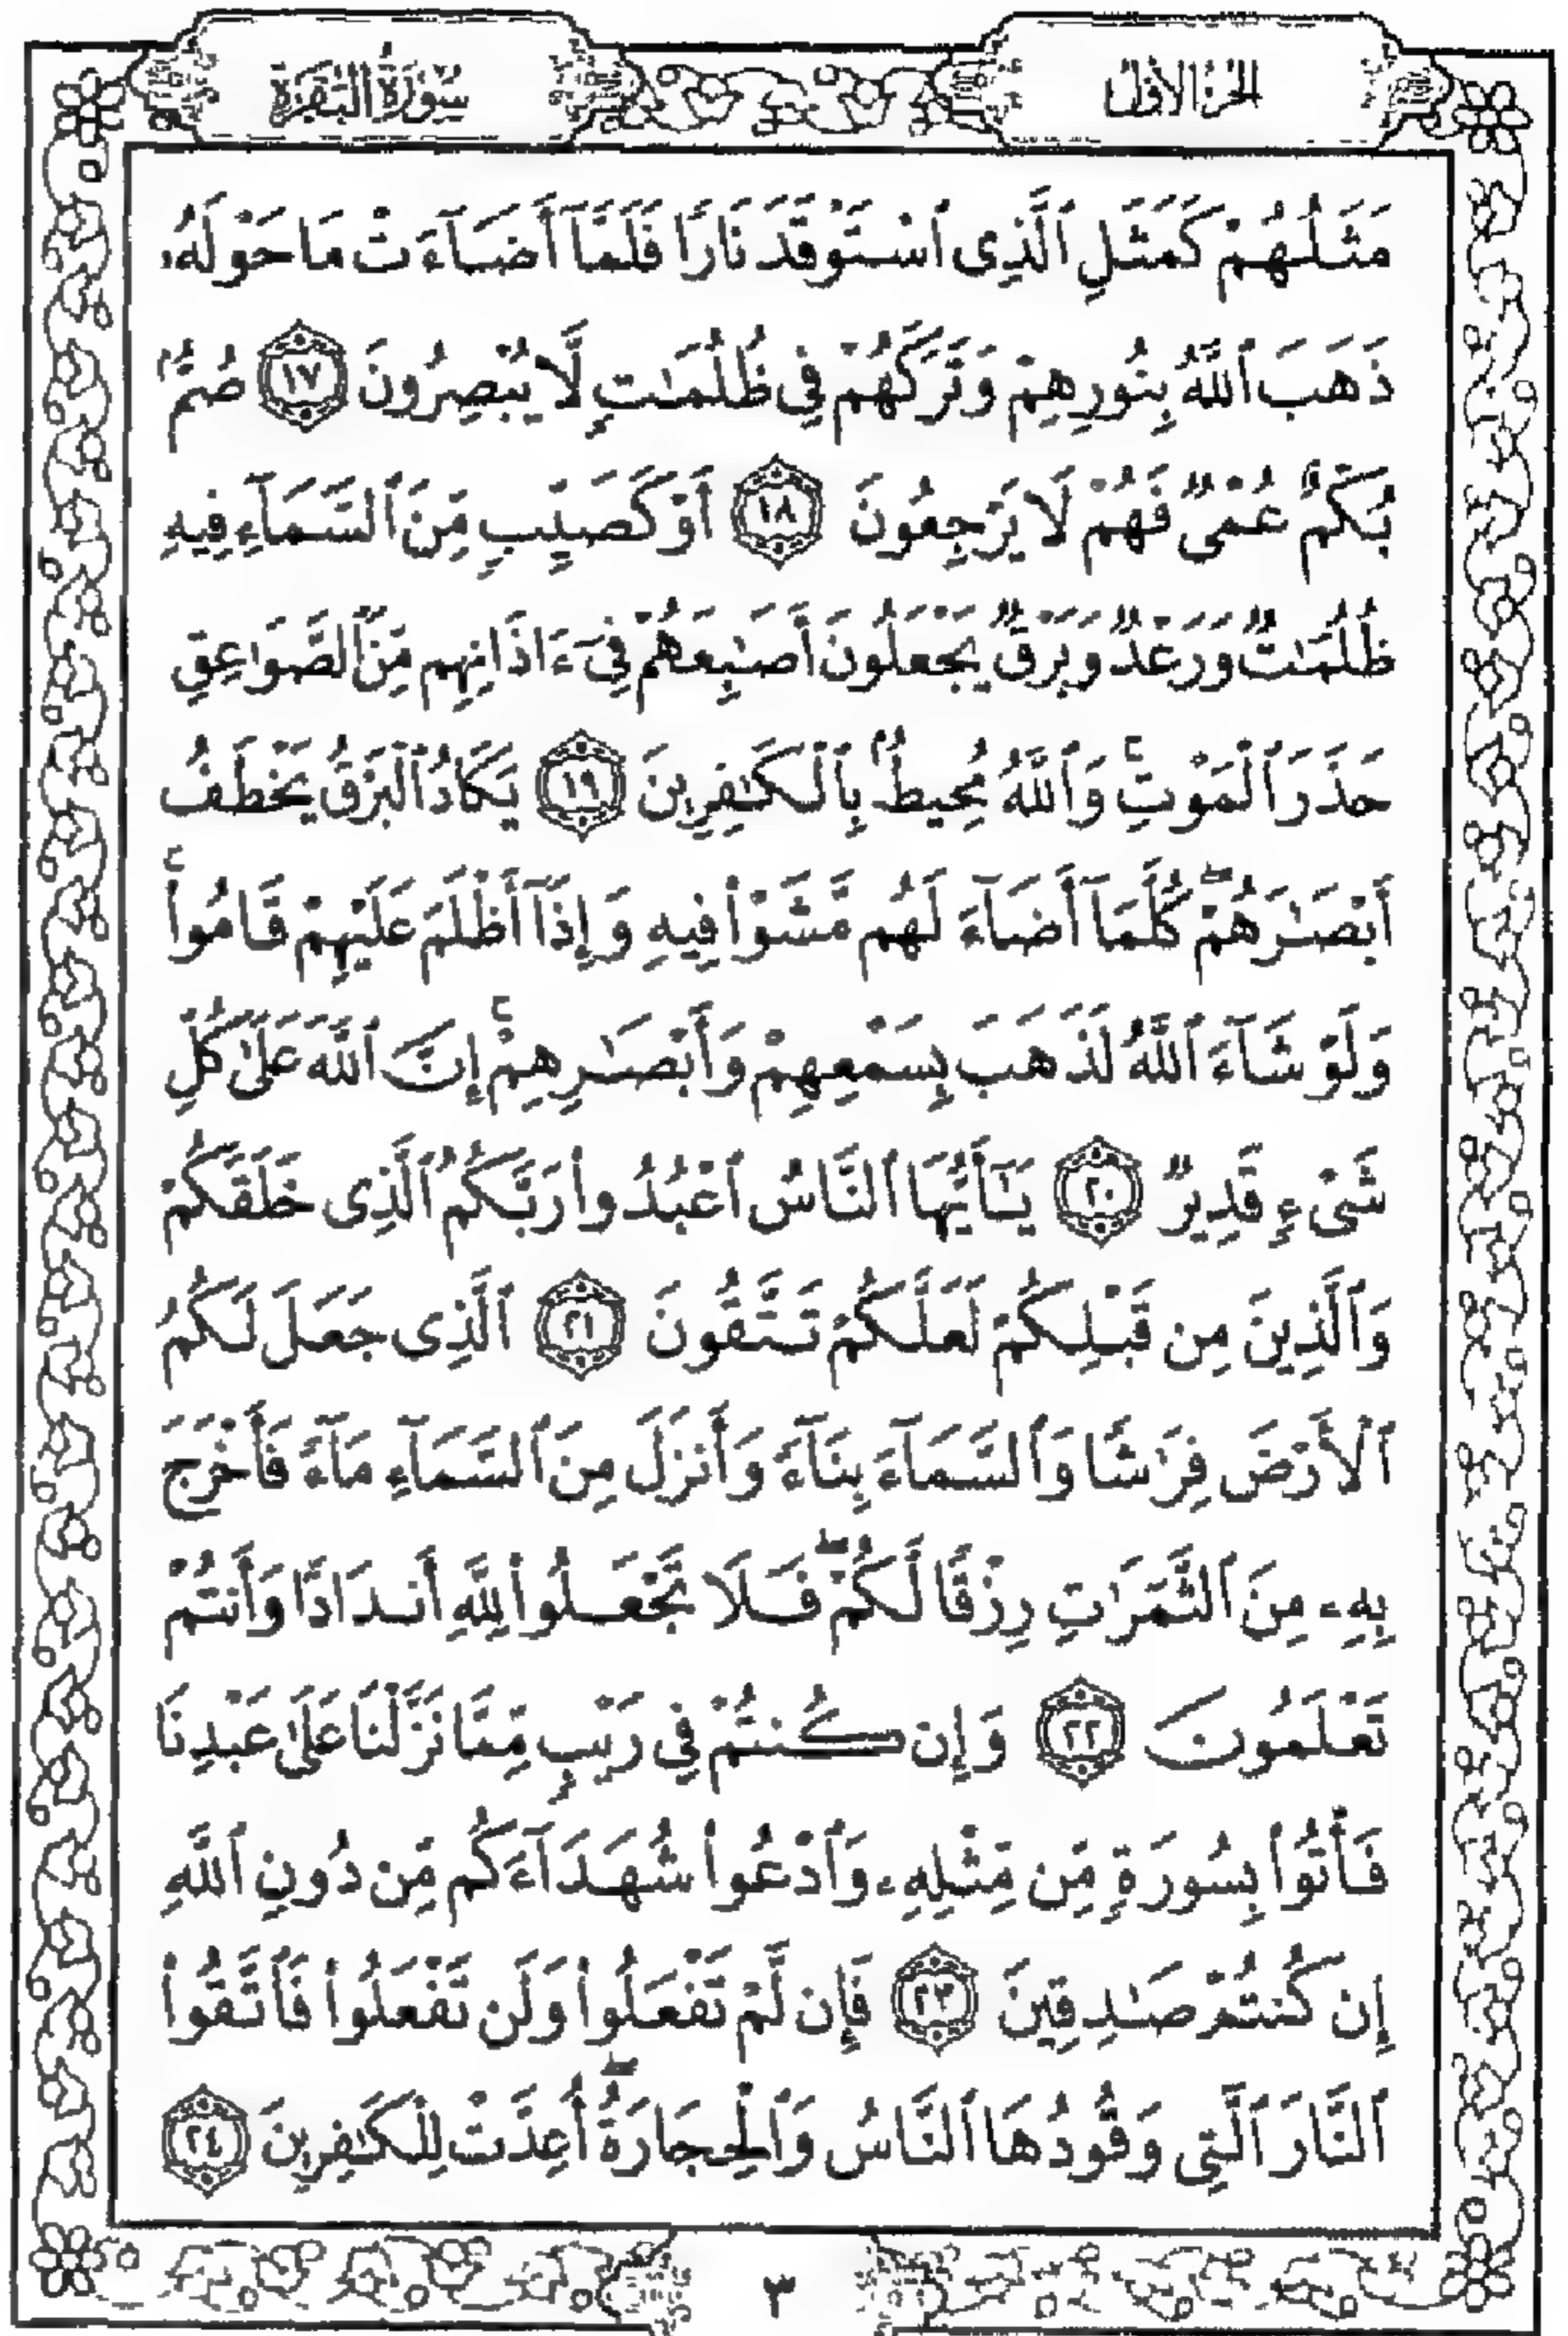 الجزء الأول
سورة البقرة
مَثَلُهُمْ كَمَثَلِ ٱلَّذِى ٱسْتَوْقَدَ نَارًا فَلَمَّآ أَضَآءَتْ مَا حَوْلَهُۥ
ذَهَبَ ٱللَّهُ بِنُورِهِمْ وَتَرَكَهُمْ فِى ظُلُمَـٰتٍ لَّا يُبْصِرُونَ ١٧ صُمٌّۢ
بُكْمٌ عُمْىٌ فَهُمْ لَا يَرْجِعُونَ ١٨ أَوْ كَصَيِّبٍ مِّنَ ٱلسَّمَآءِ فِيهِ
ظُلُمَـٰتٌ وَرَعْدٌ وَبَرْقٌ يَجْعَلُونَ أَصَـٰبِعَهُمْ فِىٓ ءَاذَانِهِم مِّنَ ٱلصَّوَٰعِقِ
حَذَرَ ٱلْمَوْتِ ۚ وَٱللَّهُ مُحِيطٌۢ بِٱلْكَـٰفِرِينَ ١٩ يَكَادُ ٱلْبَرْقُ يَخْطَفُ
أَبْصَـٰرَهُمْ ۖ كُلَّمَآ أَضَآءَ لَهُم مَّشَوْا۟ فِيهِ وَإِذَآ أَظْلَمَ عَلَيْهِمْ قَامُوا۟ ۚ
وَلَوْ شَآءَ ٱللَّهُ لَذَهَبَ بِسَمْعِهِمْ وَأَبْصَـٰرِهِمْ ۚ إِنَّ ٱللَّهَ عَلَىٰ كُلِّ
شَىْءٍ قَدِيرٌ ٢٠ يَـٰٓأَيُّهَا ٱلنَّاسُ ٱعْبُدُوا۟ رَبَّكُمُ ٱلَّذِى خَلَقَكُمْ
وَٱلَّذِينَ مِن قَبْلِكُمْ لَعَلَّكُمْ تَتَّقُونَ ٢١ ٱلَّذِى جَعَلَ لَكُمُ
ٱلْأَرْضَ فِرَٰشًا وَٱلسَّمَآءَ بِنَآءً وَأَنزَلَ مِنَ ٱلسَّمَآءِ مَآءً فَأَخْرَجَ
بِهِۦ مِنَ ٱلثَّمَرَٰتِ رِزْقًا لَّكُمْ ۖ فَلَا تَجْعَلُوا۟ لِلَّهِ أَندَادًا وَأَنتُمْ
تَعْلَمُونَ ٢٢ وَإِن كُنتُمْ فِى رَيْبٍ مِّمَّا نَزَّلْنَا عَلَىٰ عَبْدِنَا
فَأْتُوا۟ بِسُورَةٍ مِّن مِّثْلِهِۦ وَٱدْعُوا۟ شُهَدَآءَكُم مِّن دُونِ ٱللَّهِ
إِن كُنتُمْ صَـٰدِقِينَ ٢٣ فَإِن لَّمْ تَفْعَلُوا۟ وَلَن تَفْعَلُوا۟ فَٱتَّقُوا۟
ٱلنَّارَ ٱلَّتِى وَقُودُهَا ٱلنَّاسُ وَٱلْحِجَارَةُ ۖ أُعِدَّتْ لِلْكَـٰفِرِينَ ٢٤
٣